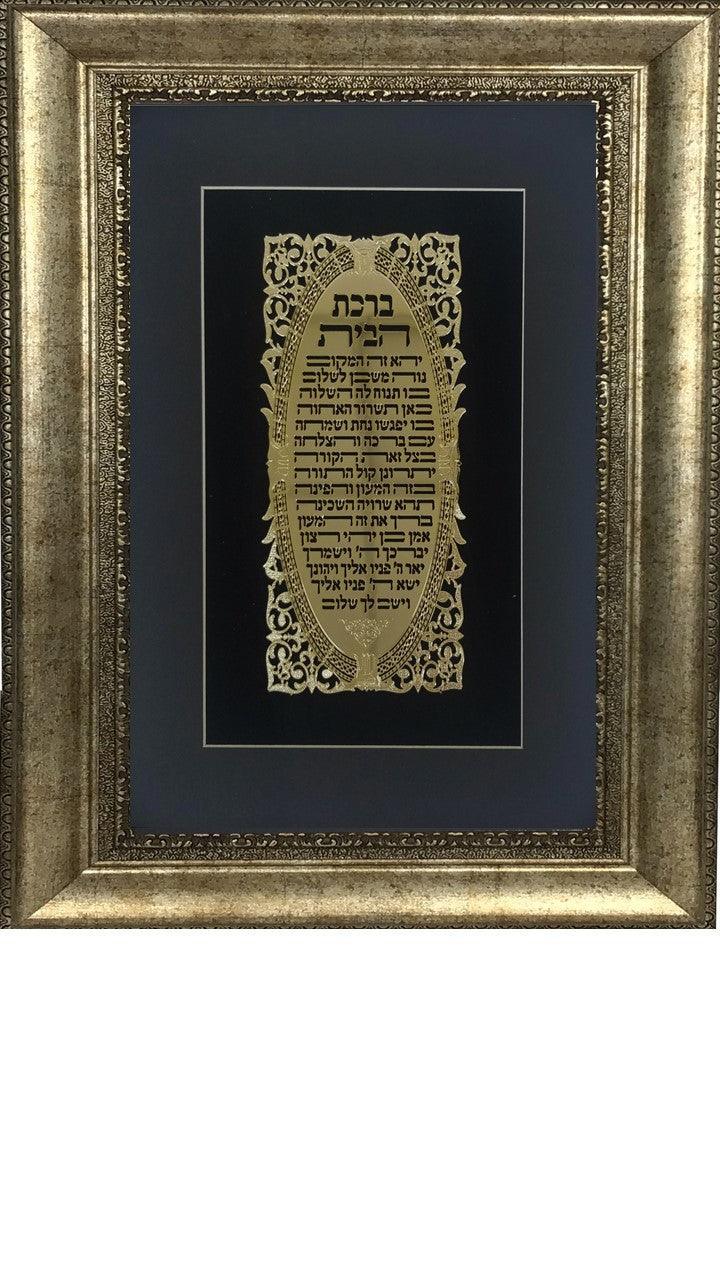 ברכת
הבית
יהא זה המקום
נוה משכן לשלום
בו תנוח לה השלוה
כאן תשרור האחוה
בו יפגשו נחת ושמחה
עם ברכה והצלחה
בצל זאת הקורה
יתרונן קול התורה
בזה המעון והפינה
תהא שרויה השכינה
ברך את זה המעון
אמן כן יהי רצון
יברכך ה׳ וישמרך
יאר ה׳ פניו אליך ויחונך
ישא ה׳ פניו אליך
וישם לך שלום